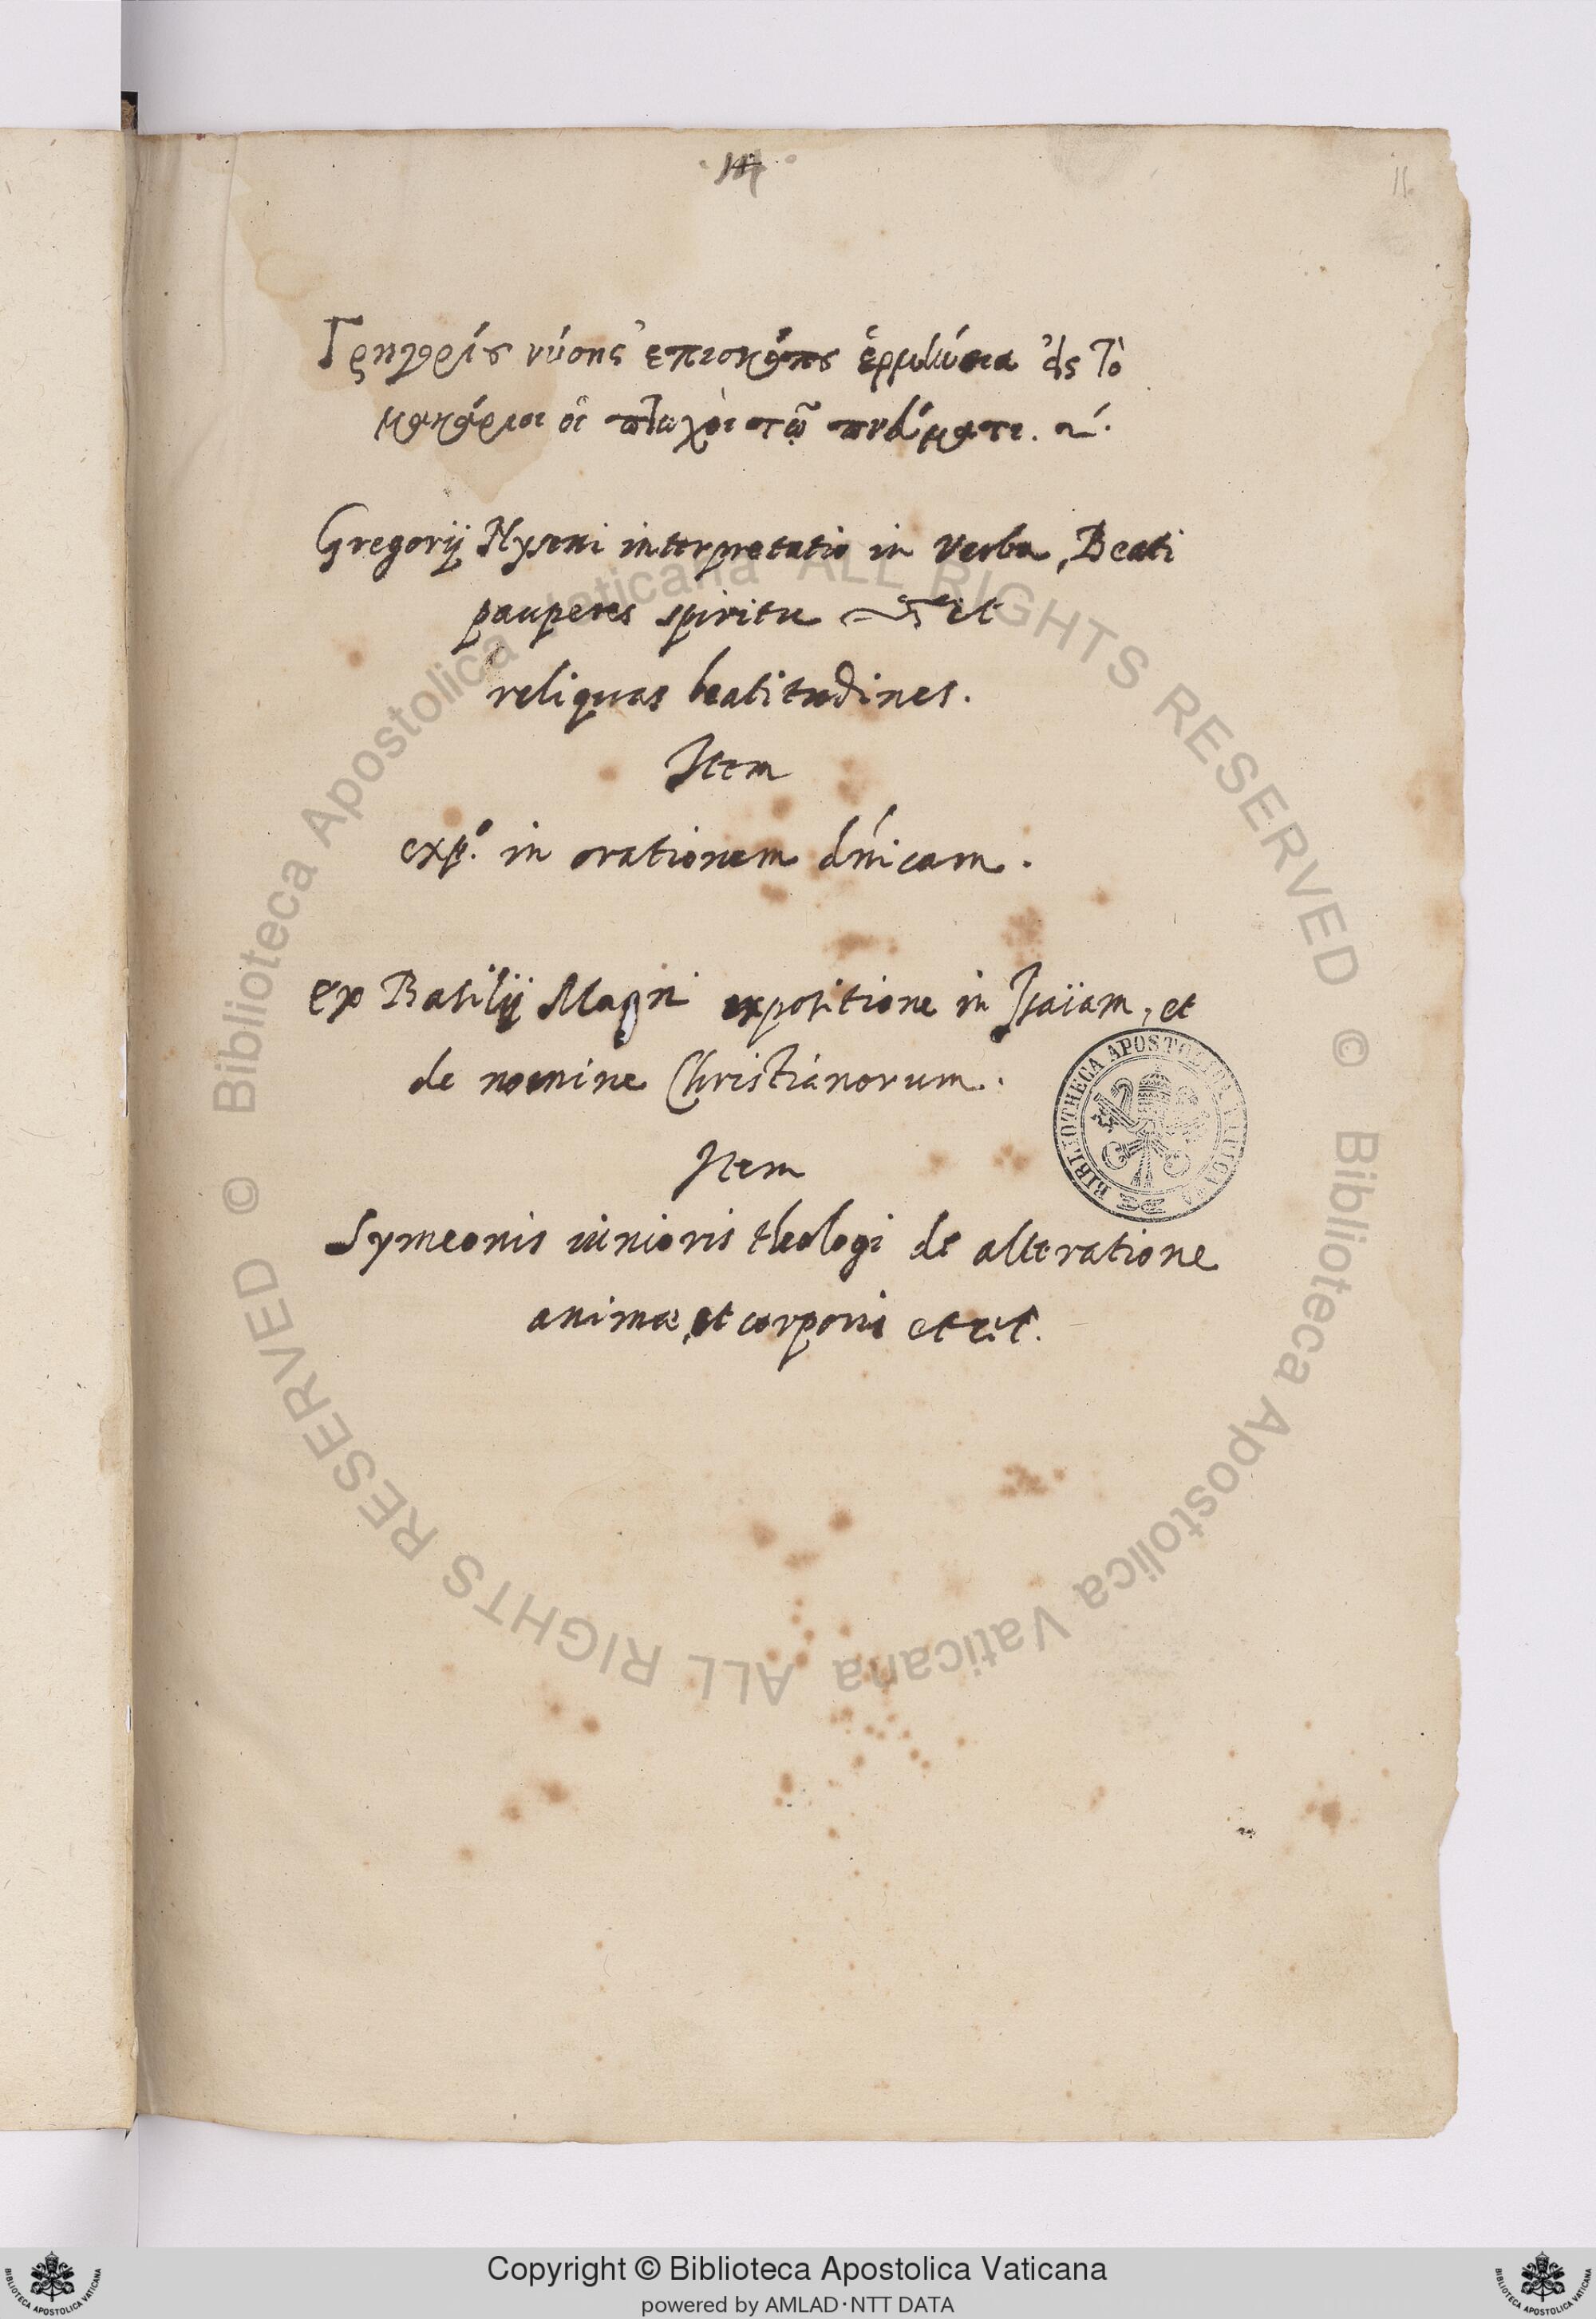 II
Γρηγορίου νύσης ἐπισκόπου ἑρμηνεία εἰς τὸ
μακάριοι οἱ πτωχοὶ τῷ πνεύματι.
Gregorij Nyseni interpretatio in verba, Beati
pauperes spiritu et
reliquas beatitudines.
Item
exp.º in orationem dńicam.
Ex Basilij Magni expositione in Isaiam, et
de nomine Christianorum.
BIBLIOTHECA APOSTOLICA VATICANA
Item
Symeonis iunioris theologi de alteratione
animæ, et corporis et cet.
© Biblioteca Apostolica Vaticana ALL RIGHTS RESERVED
© Biblioteca Apostolica Vaticana ALL RIGHTS RESERVED
Copyright © Biblioteca Apostolica Vaticana
powered by AMLAD·NTT DATA
BIBLIOTECA APOSTOLICA VATICANA
BIBLIOTECA APOSTOLICA VATICANA